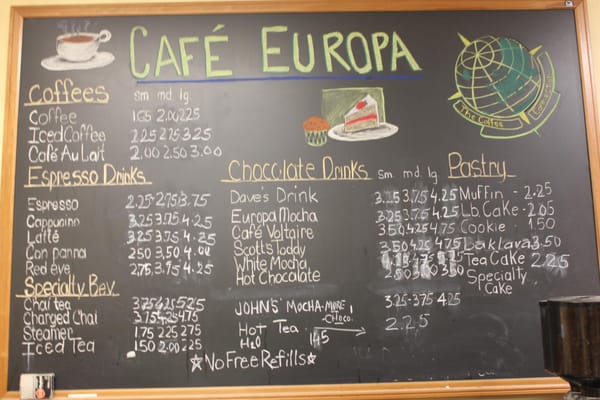 CAFÉ EUROPA
The Coffee
Coffees sm md. lg
Coffee 1.65 2.00 2.25
Iced Coffee 2.25 2.75 3.25
Café Au Lait 2.00 2.50 3.00
Espresso Drinks
Espresso 2.25 2.75 3.75
Cappucino 3.25 3.75 4.25
Latté 3.25 3.75 4.25
Con panna 2.50 3.50 4.00
Red eye 2.75 3.75 4.25
Specialty Bev.
Chai tea 3.75 4.25 5.25
Charged Chai 3.75 4.25 4.75
Steamer 1.75 2.25 2.75
Iced Tea 1.50 2.00 2.25
Chocolate Drinks sm md. lg
Dave's Drink 3.25 3.75 4.25
Europa Mocha 3.25 3.75 4.25
Café Voltaire 3.50 4.25 4.75
Scott's Toddy 3.50 4.25 4.75
White Mocha 4.75
Hot Chocolate 2.50 3.00 3.50
JOHN'S MOCHA - MORE CHOCO. 3.25 3.75 4.25
Hot Tea 2.25
H2O 1.45
☆No Free Refills☆
Pastry
Muffin - 2.25
Lb Cake - 2.05
Cookie 1.50
Baklava 3.50
Tea Cake 2.25
Specialty Cake